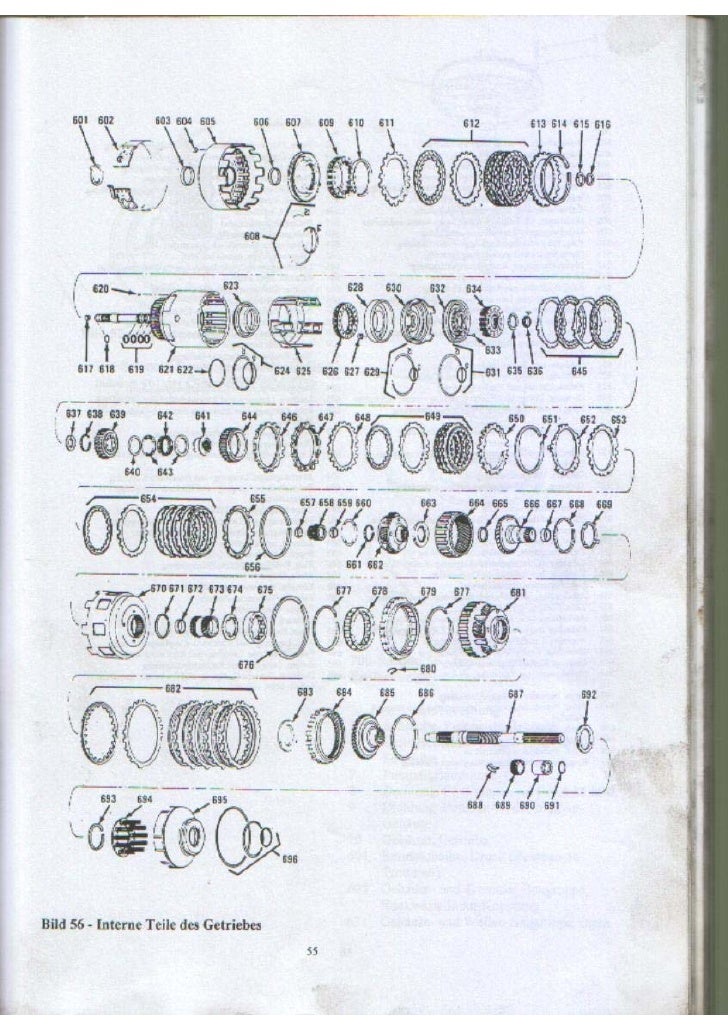 601 602 603 604 605 606 607 609 610 611 612 613 614 615 616
608
620 623 628 630 632 634
633
617 618 619 621 622 624 625 626 627 629 631 635 636 645
637 638 639 642 641 644 646 647 648 649 650 651 652 653
640 643
654 655 657 658 659 660 663 664 665 666 667 668 669
656 661 662
670 671 672 673 674 675 677 678 679 677 681
676 680
682 683 684 685 686 687 692
688 689 690 691
693 694 695
696
Bild 56 - Interne Teile des Getriebes
55